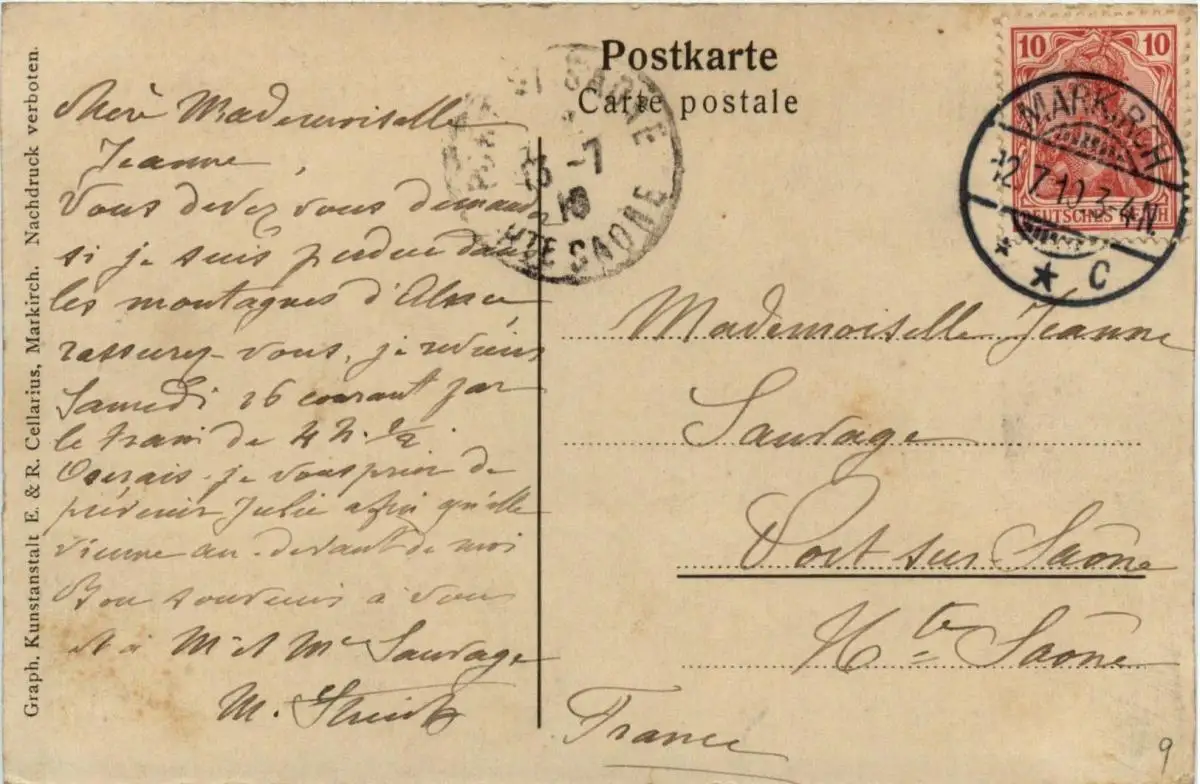 Postkarte
Carte postale
Graph. Kunstanstalt E. & R. Cellarius, Markirch. Nachdruck verboten.
Chère Mademoiselle
Jeanne,
Vous devez vous demander
si je suis perdue dans
les montagnes d'Alsace,
rassurez-vous, je reviens
Samedi 16 courant par
le train de 4 h. 1/2.
Oserais-je vous prier de
prévenir Julie afin qu'elle
vienne au-devant de moi
Bon souvenir à vous
et à Mr et Me Sauvage
M.
10 10
DEUTSCHES REICH
MARKIRCH
12.7.10.3-4N.
* * C
PORT S SAONE
13 -7
10
HTE SAONE
Mademoiselle Jeanne
Sauvage
Port sur Saône
Hte Saône
France
9